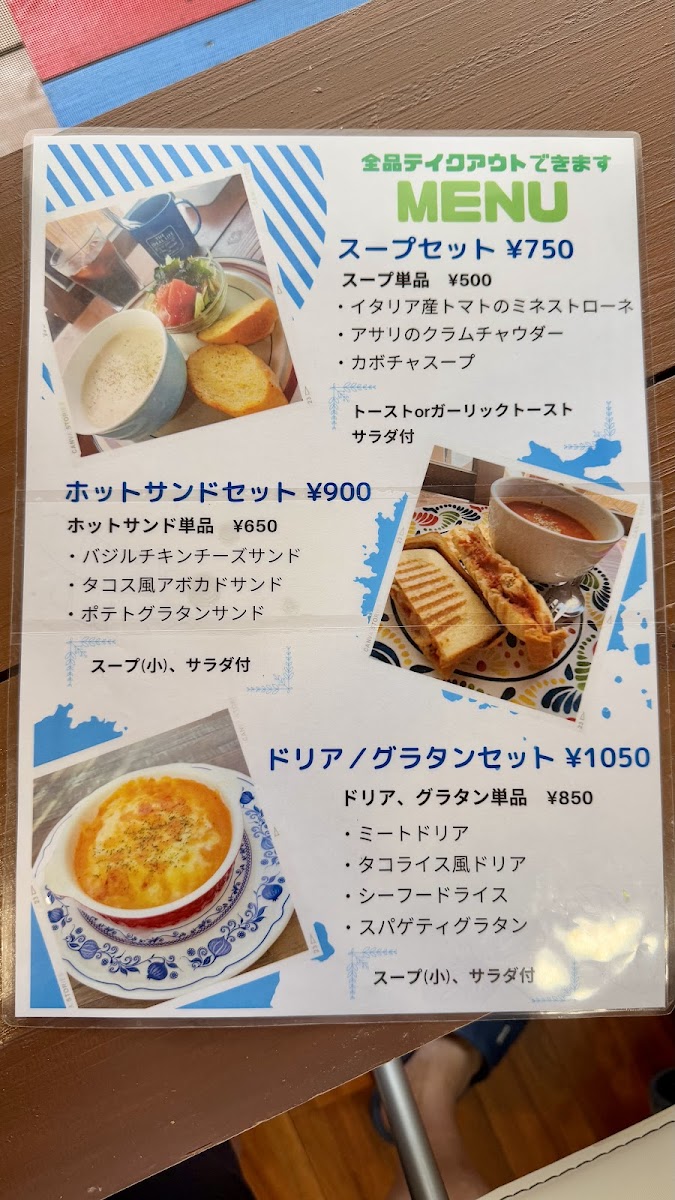 全品テイクアウトできます
MENU
スープセット ¥750
スープ単品 ¥500
・イタリア産トマトのミネストローネ
・アサリのクラムチャウダー
・カボチャスープ
トーストorガーリックトースト
サラダ付
ホットサンドセット ¥900
ホットサンド単品 ¥650
・バジルチキンチーズサンド
・タコス風アボカドサンド
・ポテトグラタンサンド
スープ(小)、サラダ付
ドリア／グラタンセット ¥1050
ドリア、グラタン単品 ¥850
・ミートドリア
・タコライス風ドリア
・シーフードライス
・スパゲティグラタン
スープ(小)、サラダ付